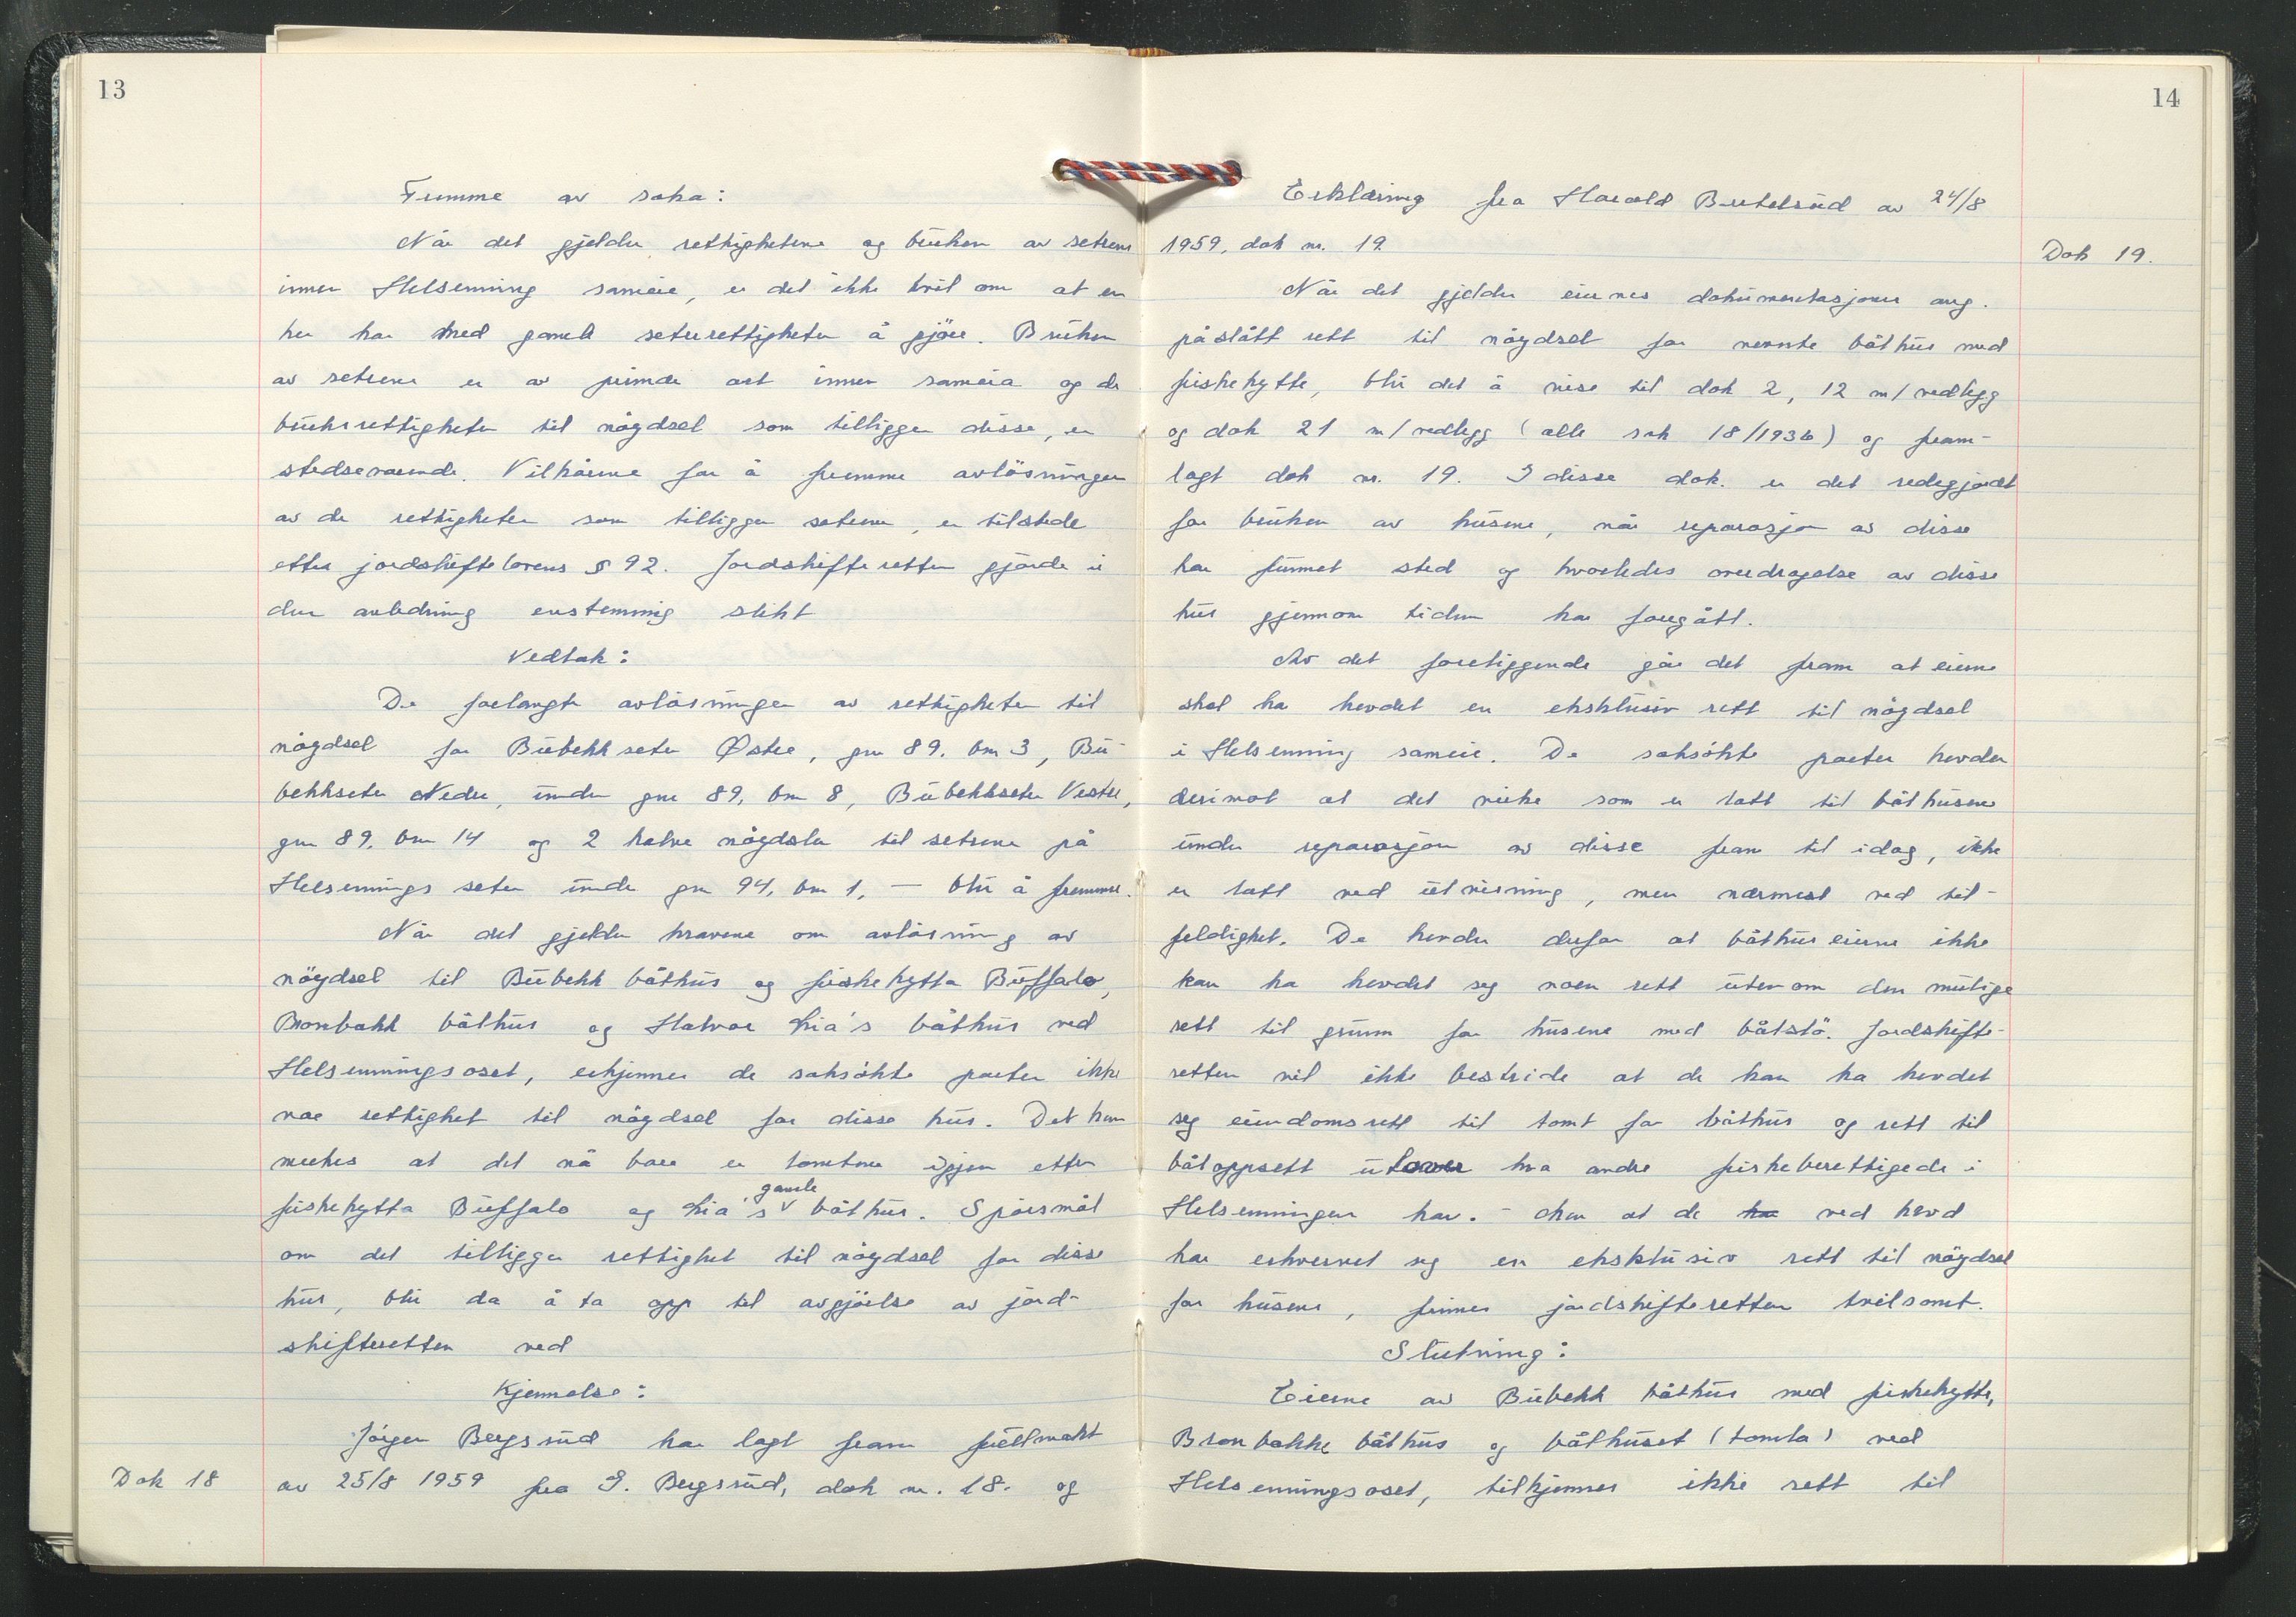 13
Fremme av saka:
Når det gjelder rettighetene og bruken av setrene
innen Helsenning sameie, er det ikke tvil om at en
her har med gamle seterrettigheter å gjöre. Bruken
av setrene er av primær art innen sameia og de
bruksrettigheter til nögdsel som tilligger disse, er
stedsevarende. Vilkårene for å fremme avlösningen
av de rettigheter som tilligger setrene, er tilstede
etter jordskiftelovens § 92. Jordskifteretten gjorde i
den anledning enstemmig slikt
Vedtak:
De forlangte avlösninger av rettigheter til
nögdsel for Bubekkseter Østre, gnr 89, bnr 3, Bu-
bekkseter Nedre, under gnr 89, bnr 8, Bubekkseter Vestre,
gnr 89, bnr 14 og 2 halve nögdsler til setrene på
Helsennings seter under gnr 94, bnr 1, — blir å fremme.
Når det gjelder kravene om avlösning av
nögdsel til Bubekk båthus og fiskehytta Buffalo,
Bronbakk båthus og Halvor Lia's båthus ved
Helsenningsoset, erkjenner de saksökte parter ikke
noe rettighet til nögdsel for disse hus. Det kan
merkes at det nå bare er tomtene igjen etter
fiskehytta Buffalo og Lia's gamle båthus. Spörsmål
om det tilligger rettighet til nögdsel for disse
hus, blir da å ta opp til avgjörelse av jord-
skifteretten ved
Kjennelse:
Jörgen Bergsrud har lagt fram fullmakt
Dok 18 av 25/8 1959 fra G. Bergsrud, dok nr. 18. og
14
Erklæring fra Harald Bertelsrud av 24/8
1959, dok nr. 19. Dok 19.
Når det gjelder eiernes dokumentasjoner ang.
påstått rett til nögdsel for nevnte båthus med
fiskehytte, blir det å vise til dok 2, 12 m/vedlegg
og dok 21 m/vedlegg (alle sak 18/1936) og fram-
lagt dok nr. 19. I disse dok. er det redegjordt
for bruken av husene, når reparasjon av disse
har funnet sted og hvorledes overdragelse av disse
hus gjennom tiden har foregått.
Av det foreliggende går det fram at eierne
skal ha hevdet en eksklusiv rett til nögdsel
i Helsenning sameie. De saksökte parter hevder
derimot at det virke som er tatt til båthusene
under reparasjon av disse fram til idag, ikke
er tatt ved utvisning, men nærmest ved til-
feldighet. De hevder derfor at båthuseierne ikke
kan ha hevdet seg noen rett utenom den mulige
rett til grunn for husene med båtstö. Jordskifte-
retten vil ikke bestride at de kan ha hevdet
seg eiendomsrett til tomt for båthus og rett til
båtoppsett utover hva andre fiskeberettigede i
Helsenningen har. - Men at de ha ved hevd
har erhvervet seg en eksklusiv rett til nögdsel
for husene, finner jordskifteretten tvilsomt.
Slutning:
Eierne av Bubekk båthus med fiskehytte,
Bronbakke båthus og båthuset (tomta) ved
Helsenningsoset, tilkjennes ikke rett til